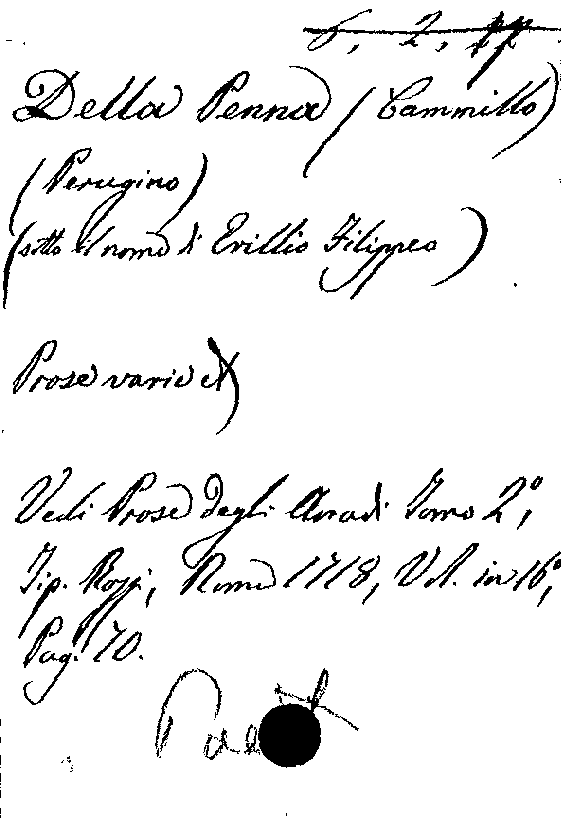 6, 2,
Della Penna (Cammillo)
(Perugino)
(sotto il nome di Evillio Filippeo)
Prose varie
Vedi Prose degli Arcadi Tomo 2º,
Tip. Rossi, Roma 1718, Vol. in 16º,
Pag. 70.